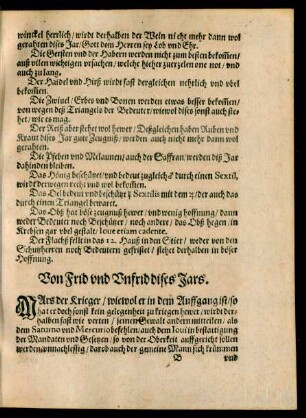 winckel herrschen / wirdt derhalben der Wein nicht mehr dann wol
gerahten dises Jar / Gott dem Herren sey Lob und Ehr.
Die Gersten und der Habern werden nicht zum besten bekommen /
auß vilen wichtigen ursachen / welche hieher zuerzelen one not / und
auch zu lang.
Der Haidel und Hirß wirdt fast dergleichen nehrlich und ubel
bekommen.
Die Zwiuel / Erbes und Bonen werden etwas besser bekommen /
von wegen deß Triangels der Bedeuter / wiewol dises sonst auch stes
het / wie es mag.
Der Reiß aber stehet wol hewer / Deßgleichen haben Ruben und
Kraut dises Jar gute Zeugnuß / werden auch nicht mehr dann wol
gerahten.
Die Pfeben und Melaunen / auch der Saffran / werden diß Jar
dahinden bleiben.
Das Hönig beschützet / und bedeut zugleich ♂ durch einen Sextil,
wirdt derwegen recht und wol bekommen.
Das Oel bedeut und beschützt ☿ Sextilis mit dem ♃ / der auch das
durch einen Triangel bewaret.
Das Obß hat böse zeugnuß hewer / und wenig hoffnung / dann
weder Bedeuter noch Beschützer / noch andere / das Obß hegen / in
Krebsen gar ubel gestalt / Ioue etiam cadente.
Der Flachß fellt in das 12. Hauß in den Stier / weder von den
Schutzherren noch Bedeutern gefristet / stehet derhalben in böser
Hoffnung.
Von Frid und Unfrid dises Jars.
MArs der Krieger / wiewol er in dem Auffgang ist / so
hat er doch sonst kein gelegenheit zu kriegen hewer / wirdt der-
halben fast wie verten / seinen Gewalt andern mitteilen / als
dem Saturno und Mercurio befehlen / auch dem Ioui in bestättigung
der Mandaten und Gesetzen / so von der Oberkeit auffgericht sollen
werden / unnachlessig / darob auch der gemeine Mann sich krümmen
B und